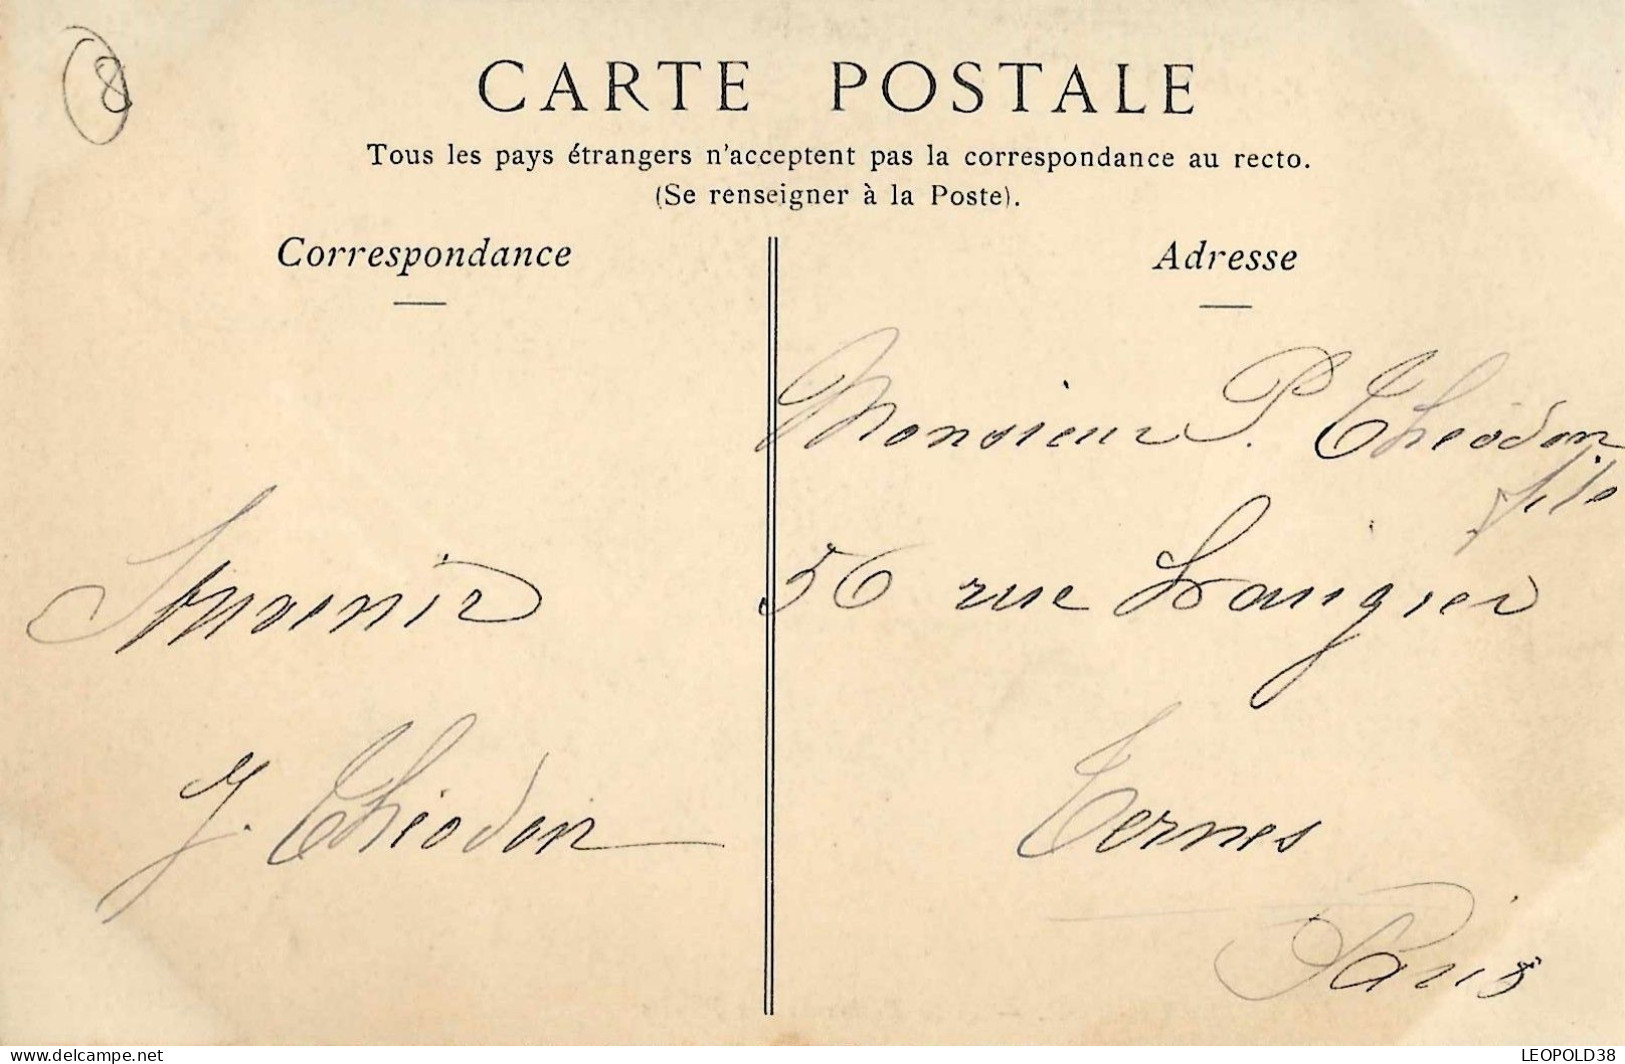 8
CARTE POSTALE
Tous les pays étrangers n'acceptent pas la correspondance au recto.
(Se renseigner à la Poste).
Correspondance
Adresse
Souvenir
J. Théodon
Monsieur P. Théodon
fils
56 rue Laugier
Ternes
Paris
https://www.delcampe.net
LEOPOLD38